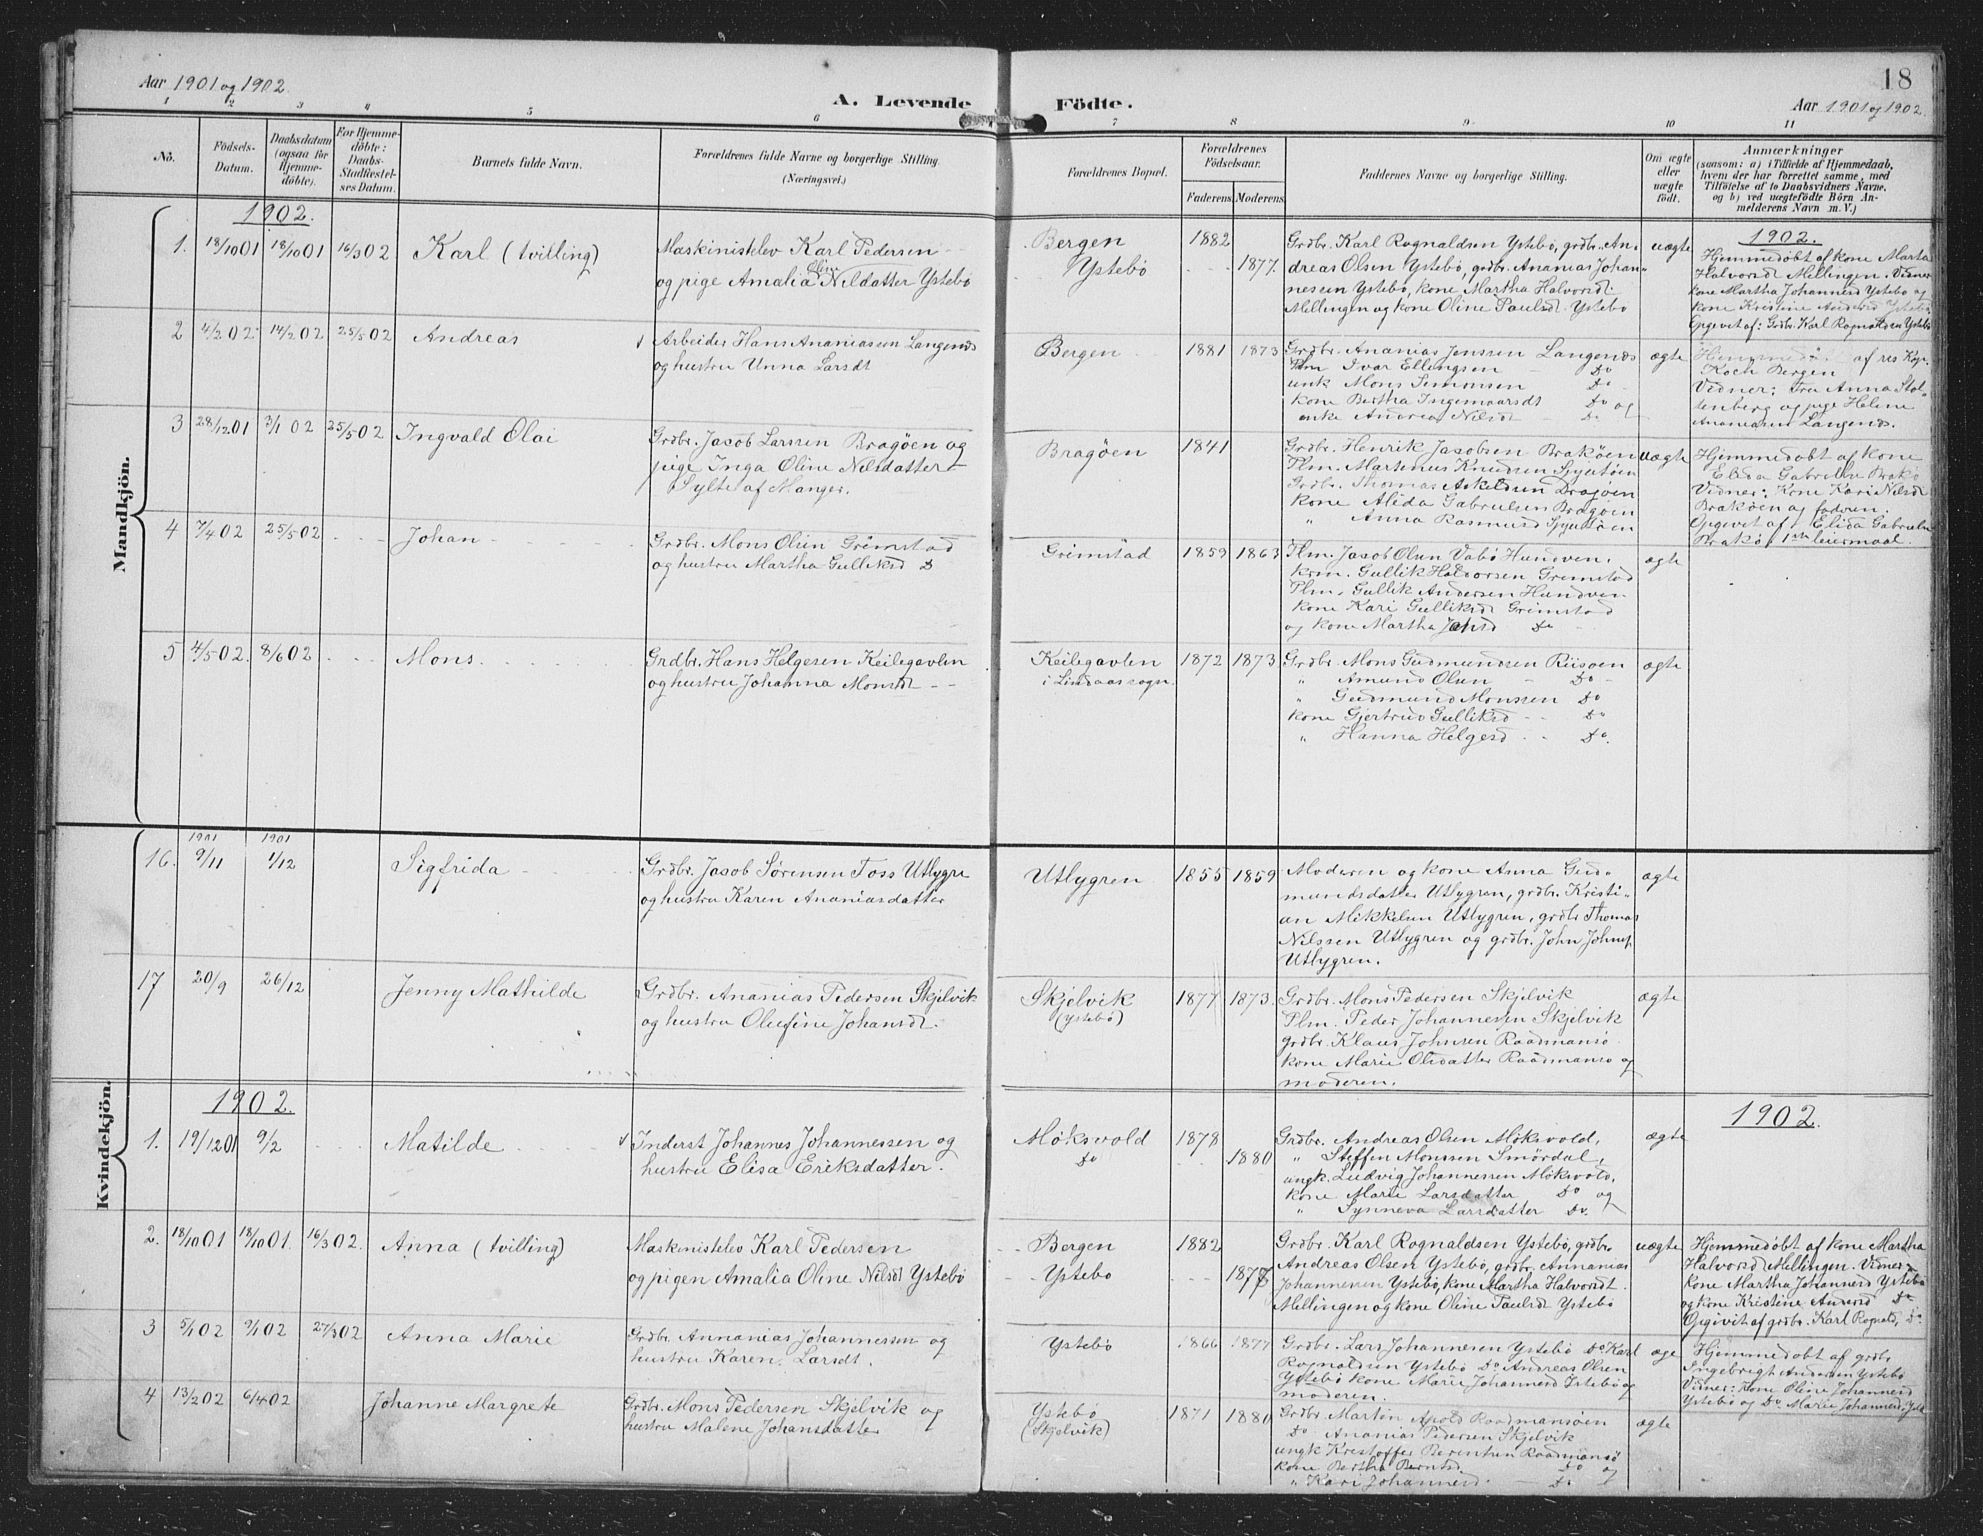 18
Aar 1901 og 1902
A. Levende Födte.
Aar 1901 og 1902
1 2 3 4 5 6 7 8 9 10 11
No.
Födsels-Datum.
Daabsdatum (ogsaa for Hjemme-döbte).
For Hjemme-döbte: Daabs-Stadfæstel-ses Datum.
Barnets fulde Navn.
Forældrenes fulde Navne og borgerlige Stilling.
(Næringsvei.)
Forældrenes Bopæl.
Forældrenes Födselsaar.
Faderens Moderens
Faddernes Navne og borgerlige Stilling.
Om ægte eller uægte födt.
Anmærkninger
(saasom: a) i Tilfælde af Hjemmedaab, hvem der har forrettet samme, med Tilföielse af to Daabsvidners Navne, og b) ved uægtefödte Börn An-melderens Navn m. V.)
Mandkjön.
1902.
1902.
1. 18/10 01 18/10 01 16/3 02 Karl (tvilling)
Maskinistelev Karl Pedersen
og pige Amalia Oline Nilsdatter Ystebö
Bergen
Ystebö
1882
1877
Grdbr. Karl Rognaldsen Ystebö, grdbr. An-
dreas Olsen Ystebö, grdbr. Ananias Johan-
nesen Ystebö, kone Martha Halvorsdt.
Mellingen og kone Oline Paulsdt Ystebö
uægte
Hjemmedöbt af kone Marta
Halvorsdt Mellingen. Vidner
kone Martha Johannesd Ystebö og
kone Kristine Andersd Ystebö
Opgevit af: Grdbr. Karl Rognaldsen Ystebö
2 4/2 02 14/2 02 25/5 02 Andreas
Arbeider Hans Ananiassen Langenes
og hustru Unna Larsdt
Bergen
1881 1873
Grdbr. Ananias Jenssen Langenes
Plm Ivar Ellingsen Do
unk Mons Simonsen Do
kone Bertha Ingemaarsdt Do og
enke Andrea Nilsdt Do
ægte
Hjemmedö. af res Kap.
Koch Bergen
Vidner: Fru Anna Stol-
tenberg og pige Helene
Ananiasen Langenes.
3 28/12 01 3/1 02 25/5 02 Ingvald Olai
Grdbr. Jacob Larssen Bragöen og
pige Inga Oline Nilsdatter
Sylte af Manger.
Bragöen
1841
Grdbr. Henrik Jacobsen Braköen
Plm. Martenus Knudsen
Grdbr. Thomas Askeldsen Bragöen
kone Alida Gabrielsen Bragöen
" Anna Rasmusd
uægte
Hjemmedöbt af kone
Elida Gabrielsen Brakö
Vidner: Kone Kari Nilsdt
Braköen og faderen.
Opgevit af Elida Gabrielsen
Brakö 1ste leiermaal.
4 7/4 02 25/5 02 Johan
Grdbr. Mons Olsen Grimstad
og hustru Martha Gulliksd Do
Grimstad
1859 1863
Plm. Jacob Olsen Vabö Hundven.
krm. Gullik Halvorsen Grimstad
Plm. Gullik Andersen Hundven
kone Kari Gulliksd Grimstad
og kone Martha Johsd Do
ægte
5 4/5 02. 8/6 02 Mons.
Grdbr. Hans Helgesen Keilegavlen
og hustru Johanna Monsdt
Keilegavlen
i Lindaas sogn.
1872 1873
Grdbr. Mons Gudmundsen Riisöen
" Amund Olsen Do
" Gudmund Monssen Do
kone Gjertrud Gulliksd Do
" Hanna Helgesd Do.
ægte
Kvindekjön.
1901 1901
16. 9/11 1/12 Sigfrida
Grdbr. Jacob Sörensen Foss Utlygre
og hustru Karen Ananiasdatter
Utlygren
1855 1859
Moderen og kone Anna Gud-
mundsdatter Utlygren, grdbr. Kristi-
an Mikkelsen Utlygren, grdbr Thomas
Nilssen Utlygren og grdbr. John Johnss.
Utlygren.
ægte
17 20/9 26/12 Jenny Mathilde
Grdbr. Ananias Pedersen Skjelvik
og hustru Olufine Johansdt.
Skjelvik
(Ystebö)
1877 1873.
Grdbr. Mons Pedersen Skjelvik
Plm. Peder Johannesen Skjelvik
grdbr. Klaus Johnsen Raadmansö
kone Marie Olsdatter Raadmansö og
moderen.
ægte
1902.
1902.
1. 19/12 01 9/2 Matilde
Inderst Johannes Johannessen og
hustru Elisa Eriksdatter.
Möksvold
Do
1878
1880
Grdbr. Andreas Olsen Möksvold,
" Steffen Monssen Smördal,
ungk. Ludvig Johannessen Möksvold,
kone Marie Larsdatter Do og
" Synneva Larsdatter Do.
ægte
2. 18/10 01 18/10 01. 16/3 02. Anna (tvilling)
Maskinistelev Karl Pedersen
og pigen Amalia Oline Nilsdt Ystebö
Bergen
Ystebö
1882
1877
Grdbr. Karl Rognaldsen Ystebö, grdbr.
Andreas Olsen Ystebö, grdbr. Annanias
Johannesen Ystebö, kone Martha Halvorsdt.
Mellingen og kone Oline Paulsdt Ystebö
uægte
Hjemmedöbt af kone Martha
Halvorsd Mellingen. Vidner
kone Martha Johannesd Ystebö
og kone Kristine Andersd Do
Opgivit af grdbr. Karl Rognalds. Do
3 5/1 02 9/1 02 27/3 02 Anna Marie
Grdbr. Annanias Johannessen og
hustru Karen Larsdt.
Ystebö
1866 1877
Grdbr. Lars Johannesen Ystebö Do Karl
Rognaldsen Ystebö Do Andreas Olsen
Ystebö kone Marie Johannesd Ystebö og
moderen.
æge
Hjemmedöbt af grdbr.
Ingebrigt Andersen Ystebö
Vidner: kone Oline Johannesd
Ystebö og Do Marie Johannesd Yste
4 13/2 02 6/4 02 Johanne Margrete
Grdbr. Mons Pedersen Skjelvik og
hustru Malene Johansdatter
Ystebö
(Skjelvik)
1871 1880
Grdbr. Martin Apold Raadmansöen
Do Ananias Pedersen Skjelvik
ungk Kristoffer Berentsen Raadmansö
kone Bertha Berntsd Do og
" Kari Johannesd. Do
ægte